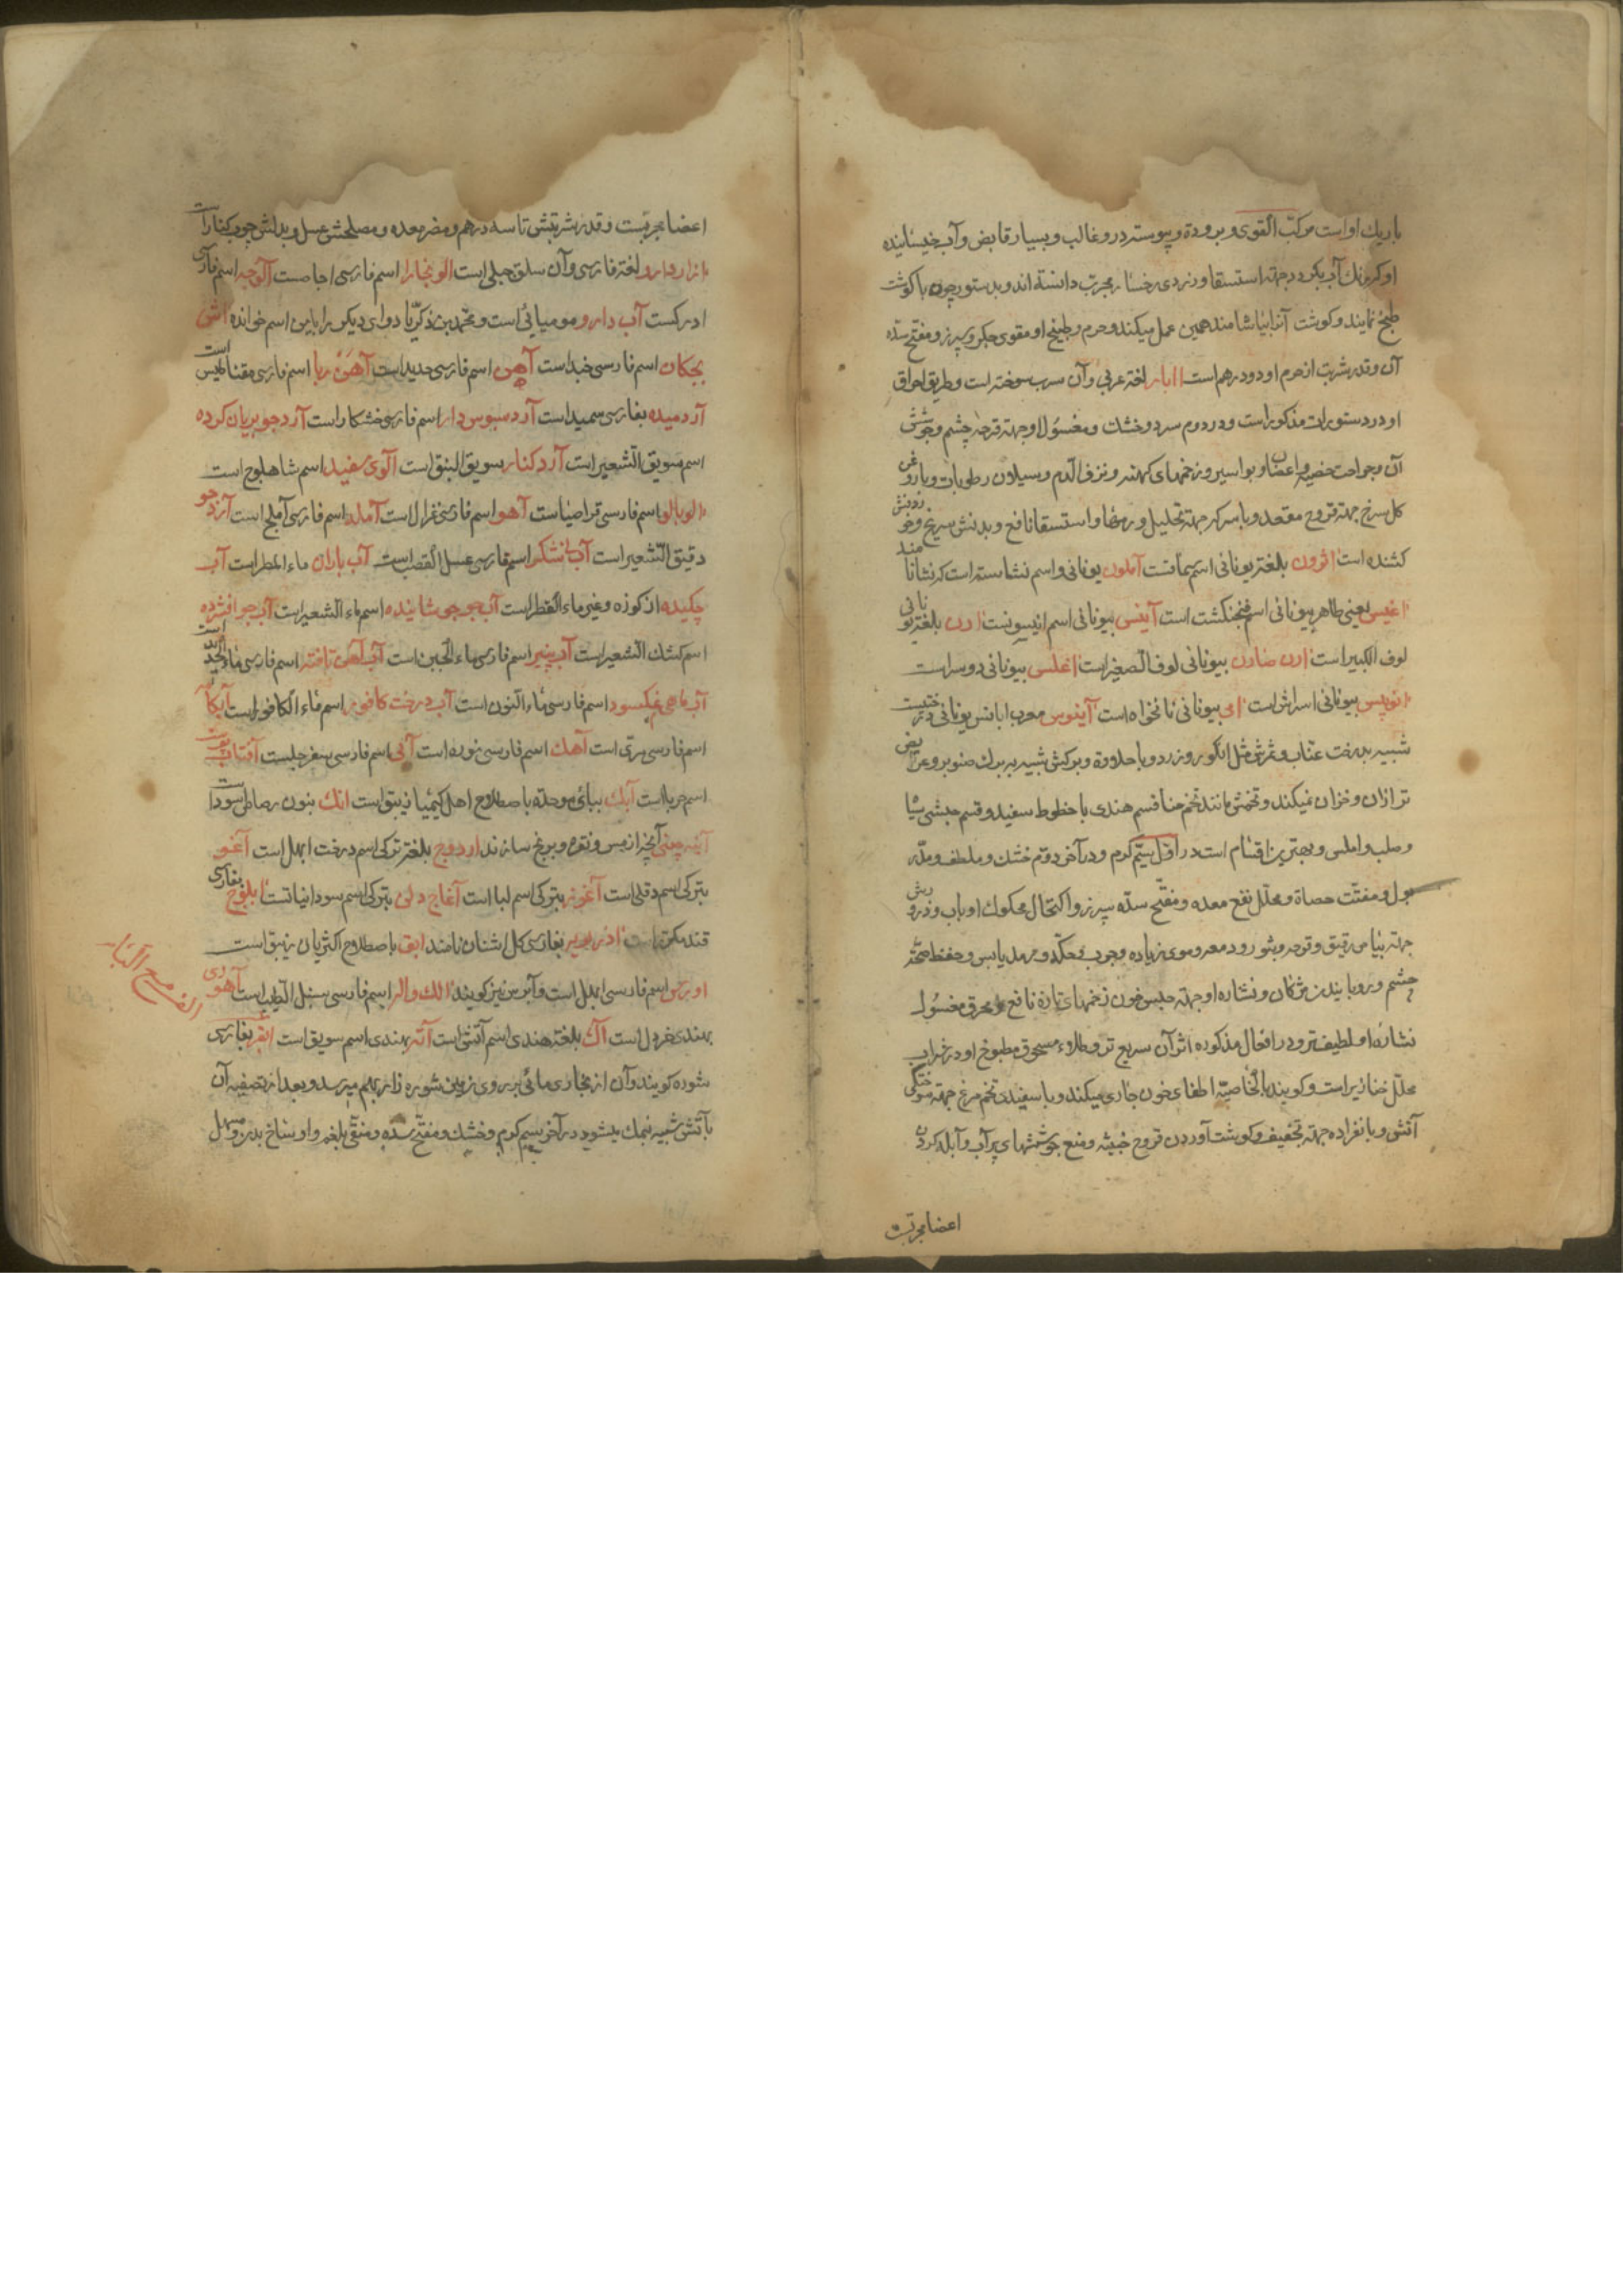 باریك او است مركّب القوی و برودة و پیوسته درو غالب و بسیار قابض و آب خیسانیده
او كه برنك آب بكردد جهته استسقا و زردی رخسار مجرب دانسته اند و بدستور چون با كوشت
طبخ نمایند و كوشت آنرا بیاشامند همین عمل میكند و جرم و طبیخ او مقوی جكر و سپرز و مفتح سدّه
آن و قدر شربت از جرم او دو درهم است اابار لغة عربی و آن سرب سوخته است و طریق احراق
او در دستورات مذكور است و در دوم سرد و خشك و مغسول او جهته قرحه چشم و جوشش
آن و جراحت خصیه و اعضا و بواسیر و زخمهای كهنه و نزف الدم و سیلان رطوبات و با روغن
كل سرخ جهته قروح مقعد و با سركه جهته تحلیل ورمها و استسقا نافع و بدنش سریخ و خوردنش
كشنده است اثرون بلغة یونانی اسم سمّاقست آملون یونانی و اسم نشاسته است كه نشا نامند
اغیس یعنی طاهر بیونانی اسم فنجنكشت است آینسی بیونانی اسم انیسونست ارن بلغة یونانی
لوف الكبیر است ارن صارن بیونانی لوف الصغیر است اغلسی بیونانی دوسر است
بیونانی اسراش است امی بیونانی نانخواه است آبنوس معرب ابانس یونانی درختیست
شبیه بدرخت عنّاب و ثمرش مثل انكور و زرد و با حلاوة و بركش شبیه ببرك صنوبر و عریض
تر از ان و خزان نمیكند و تخمش مانند تخم حنا قسم هندی با خطوط سفید و قسم حبشی سیاه
و صلب و املس و بهترین اقسام است در اوّل سیّم كرم و در آخر دوّم خشك و ملطف و مدّر
بول و مفتّت حصاة و محلّل نفخ معده و مفتّح سدّه سپرز و اكتحال محكوك او باب و ذرورش
جهته بیاض رقیق و قرحه و بثور و دمعه و موی زیاده و جرب و حكّه و رمد یابس و حفظ صحّة
چشم و رویانیدن مژكان و نشاره او جهته حبس خون زخمهای تازه نافع و محرق مغسول
نشاره او لطیف تر و در افعال مذكوره اثر آن سریع تر و طلاء مسحوق مطبوخ او در شراب
محلّل خنازیر است و كویند بالخاصیّه اطفای خون جاری میكند و با سفیده تخم مرغ جهته سوختكی
آتش و بانفراده جهته تجفیف و كوشت آوردن قروح خبیثه و منع جوششهای پر آب و آبله كردن
اعضا مجربست
اعضا مجربست و قدر شربتش تا سه درهم و مضر معده و مصلحش عسل و بدلش چوب كنار است
لغة فارسی و آن سلق جبلی است الو بخارا اسم فارسی اجاصست آلوچه اسم فارسی
ادركست آب دارو مومیائی است و محمّد بن زكریّا دوای دیكر را باین اسم خوانده آتش
بچكان اسم فارسی خبد است آهن اسم فارسی حدید است آهن ربا اسم فارسی مقناطیس است
آرد میده بفارسی سمید است آرد سبوس دار اسم فارسی خشكار است آرد جو بریان كرده
اسم سویق الشعیر است آرد كنار سویق النبق است آلوی سفید اسم شاهلوج است
الوبالو اسم فارسی قراصیا است آهو اسم فارسی غزال است آمله اسم فارسی آملج است آرد جو
دقیق الشعیر است آب نشكر اسم فارسی عسل القصب است آب باران ماء المطر است آب
چكیده از كوزه و غیره ماء القطر است آب جو جوشانیده اسم ماء الشعیر است آب جو افشرده
اسم كشك الشعیر است آب پنیر اسم فارسی ماء الجبن است آب آهن تافته اسم فارسی ماء الحدید است
آب ماهی نمكسود اسم فارسی ماء النون است آب درخت كافور اسم ماء الكافور است آبكامه
اسم فارسی مری است آهك اسم فارسی نوره است آبی اسم فارسی سفرجلست آفتاب پرست
اسم حربا است آبك ببای موحده باصطلاح اهل كیمیا زیبق است انك بنون رصاص اسود است
آینه چینی آنچه از مس و نقره و برنج سازند اردوج بلغة تركی اسم درخت ابهل است آغو
بتركی اسم دفلی است آغوز بتركی اسم لبا است آغاج دلن بتركی اسم سودانیاتست ابلوج بفارسی
قند مكرر است بفارسی كل اشنان نامند ابق باصطلاح اكثریان زیبق است
اورس اسم فارسی ابهل است و آبرس نیز كویند الك والر اسم فارسی سنبل الطیب است آهوری
بهندی خردل است آك بلغة هندی اسم آتش است آته بهندی اسم سویق است ابقر بفارسی
شوره كویند و آن از بخاری مائی بر روی زمین شوره زار بهم میرسد و بعد از تصفیه آن
بآتش شبیه بنمك میشود در آخر سیم كرم و خشك و مفتح سده و منقی بلغم و اوساخ بدن و مسهل
الف مع الباء